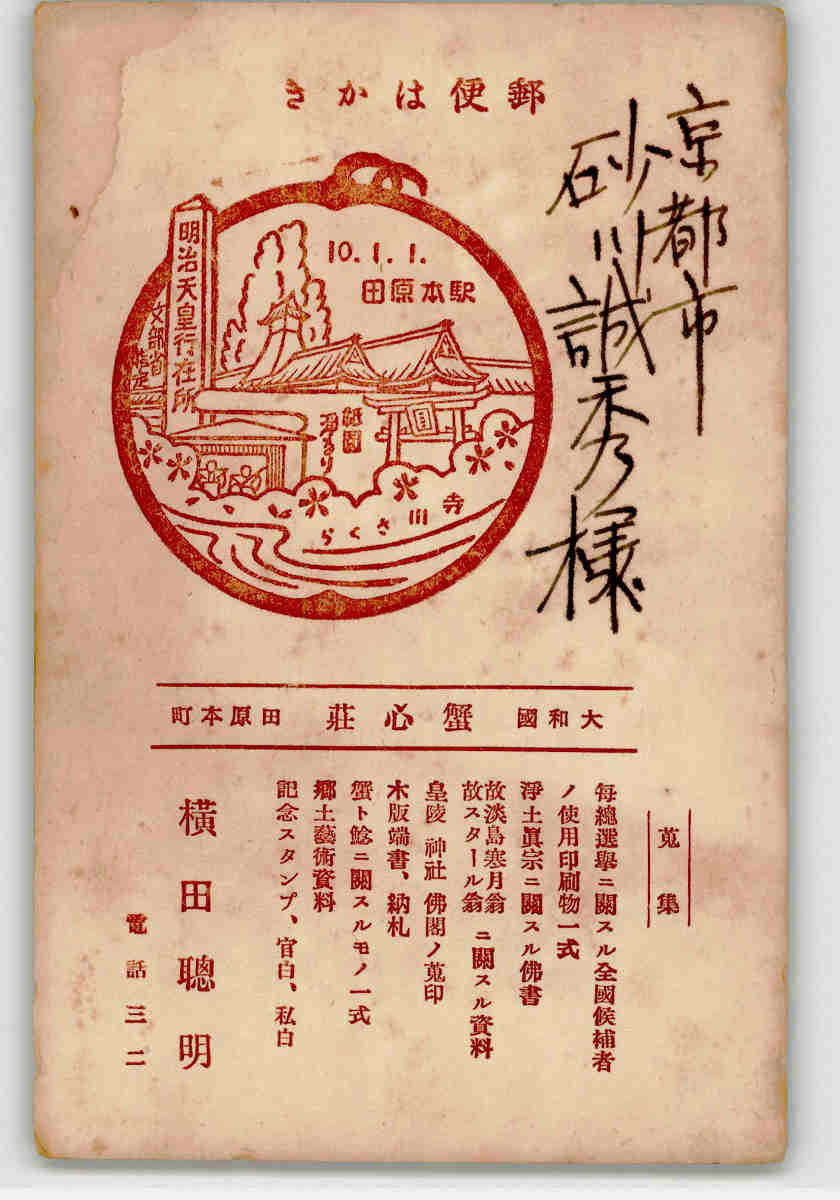 郵便はかき
京都市
砂川誠秀様
10.1.1.
田原本駅
明治天皇行在所
文部省
推定
祇園
寺川
さくら
大和國 蟹心荘 田原本町
蒐集
每總選擧ニ關スル全國候補者
ノ使用印刷物一式
淨土眞宗ニ關スル佛書
故淡島寒月翁
故スタール翁
ニ關スル資料
皇陵 神社 佛閣ノ蒐印
木版端書、納札
蟹ト鯰ニ關スルモノ一式
鄕土藝術資料
記念スタンプ、官白、私白
橫田聰明
電話三二